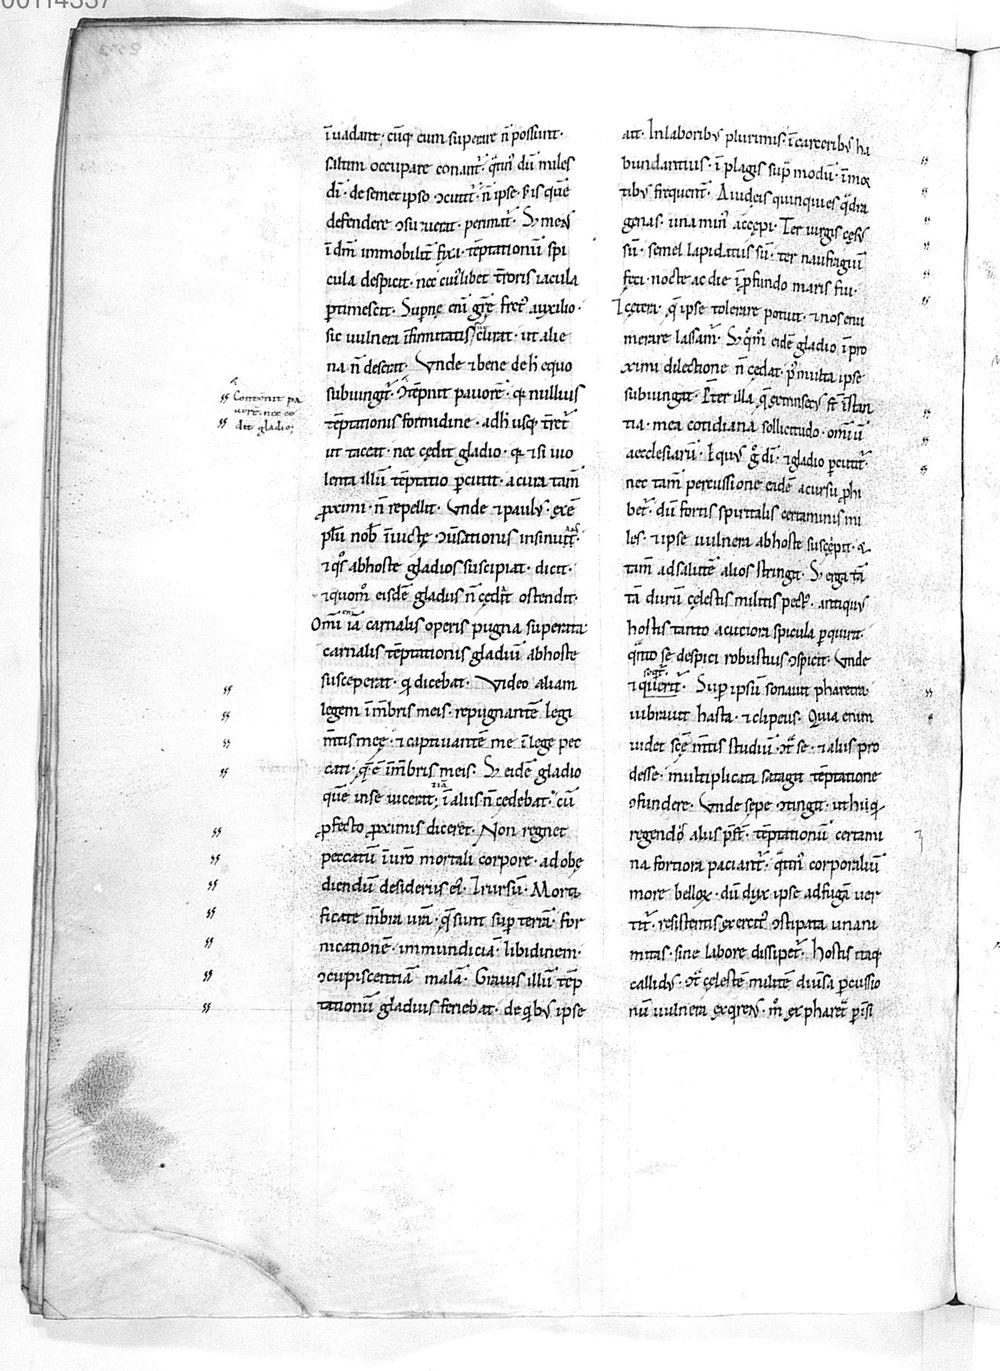 00114337
īuadant. cūq; eum superare n̄ possunt.
saltim occupare conant̄. q̄tin̄ dū miles
dī. de semetipso ꝯcutit̄. n̄ ipse is quē
defendere ꝯsueuerat. perimat̄. Sꝫ mens
ī dn̄m immobilit̄ fixa. tēptationū spi
cula despicit. nec cuiꝰlibet t̄roris iacula
ꝑtimescit. Supnę eni grę fret auxilio.
sic uulnera īfirmitatis suę curat. ut alie
na n̄ deserat. Vnde & bene de h̄ equo
subiungit̄. Ꝯtēpnit pauorē. quia nullius
tēptationis formidine. adh usq; t̄ret̄
ut taceat. nec cędit gladio. quia & si uio
lenta illū tēptatio ꝑcutit. a cura tam̄
ꝓximi. n̄ repellit. Vnde & paulꝰ. exē
plū nob̄ īuictę ꝯūsationis insinuans.
& qs̄ ab hoste gladios suscipiat. dicit.
& quom̄ eisdē gladiis n̄ cędat ostendit.
Om̄i eni iā carnalis operis pugna superata.
carnalis tēptationis gladiū ab hoste
susceperat. qui dicebat. Video aliam
legem ī mēbris meis. repugnantē legi
m̄tis meę. & captiuantē me ī lege pec
cati. quę ē ī mēbris meis. Sꝫ eidē gladio
quē in se uicerat. etiā ī aliis n̄ cedebat. cū
ꝓfecto ꝓximis diceret. Non regnet
peccatū ī uro mortali corpore. ad obę
diendū desideriis eiꝰ. Et rursū. Morti
ficate mēbra urā. quę sunt sup terrā. for
nicationē. immundiciā. libidinem.
ꝯcupiscentiā malā. Grauis illū tēp
tationū gladius feriebat. de qibꝰ ipse
Contēnit pa
uorē. nec ce
dit gladio;
ait. In laboribꝰ plurimis. ī carceribꝰ ha
bundantius. ī plagis sup̄ modū. ī mor
tibꝰ frequent̄. A iudeis quinquies q̄dra
genas. una min̄ accępi. Ter uirgis cęsꝰ
sū. semel lapidatus sū. ter naufragiū
feci. nocte ac die ī ꝓfundo maris fui.
Et cętera. quę ipse tolerare potuit. & nos enu
merare lassam̄. Sꝫ qm̄ eidē gladio ī pro
ximi dilectione n̄ cędat. p̄ multa ipse
subiungit. Pt̄er illa quę extrinsecꝰ st̄ īstan
tia. mea cotidiana sollicitudo. om̄iū
aecclesiarū. Equꝰ g̊ dī. & gladio ꝑcutit̄.
nec tam̄ percussione eidē a cursu ꝓhi
bet̄. dū fortis spiritalis certaminis mi
les. & ipse uulnera ab hoste suscępit. &
tam̄ ad salutē alios stringit. Sꝫ erga tā
tā durū cęlestis militis pectꝰ. antiquꝰ
hostis tanto acutiora spicula ꝑquirit.
q̄nto se despici robustius ꝯspicit. Vnde
& seqit̄. Sup ipsū sonauit pharetra.
uibrauit hasta. & clipeus. Quia enim
uidet scę m̄tis studiū. ꝯt̄ se. & aliis pro
desse. multiplicata satagit tēptatione
ꝯfundere. Vnde sępe ꝯtingit. ut hii qui
regendis aliis p̄st̄. tēptationū certami
na fortiora paciant̄. q̄tin̄ corporaliū
more bellorum. dū dux ipse ad fugā uer
tit̄. resistentis exercitꝰ ꝯstipata unani
mitas. sine labore dissipet̄. Hostis itaq;
callidꝰ. ꝯt̄ cęlestē militē diūsa ꝑcussio
nū uulnera exquirens. m̊ ex pharet̄ ꝑ isi